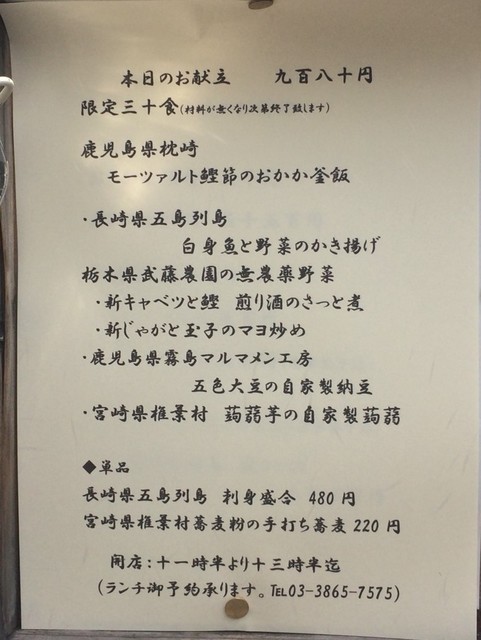 本日のお献立　九百八十円
限定三十食(材料が無くなり次第終了致します)
鹿児島県枕崎
モーツァルト鰹節のおかか釜飯
・長崎県五島列島
白身魚と野菜のかき揚げ
栃木県武藤農園の無農薬野菜
・新キャベツと鰹　煎り酒のさっと煮
・新じゃがと玉子のマヨ炒め
・鹿児島県霧島マルマメン工房
五色大豆の自家製納豆
・宮崎県椎葉村　蒟蒻芋の自家製蒟蒻
◆単品
長崎県五島列島　刺身盛合　480円
宮崎県椎葉村蕎麦粉の手打ち蕎麦 220円
開店：十一時半より十三時半迄
(ランチ御予約承ります。TEL03-3865-7575)